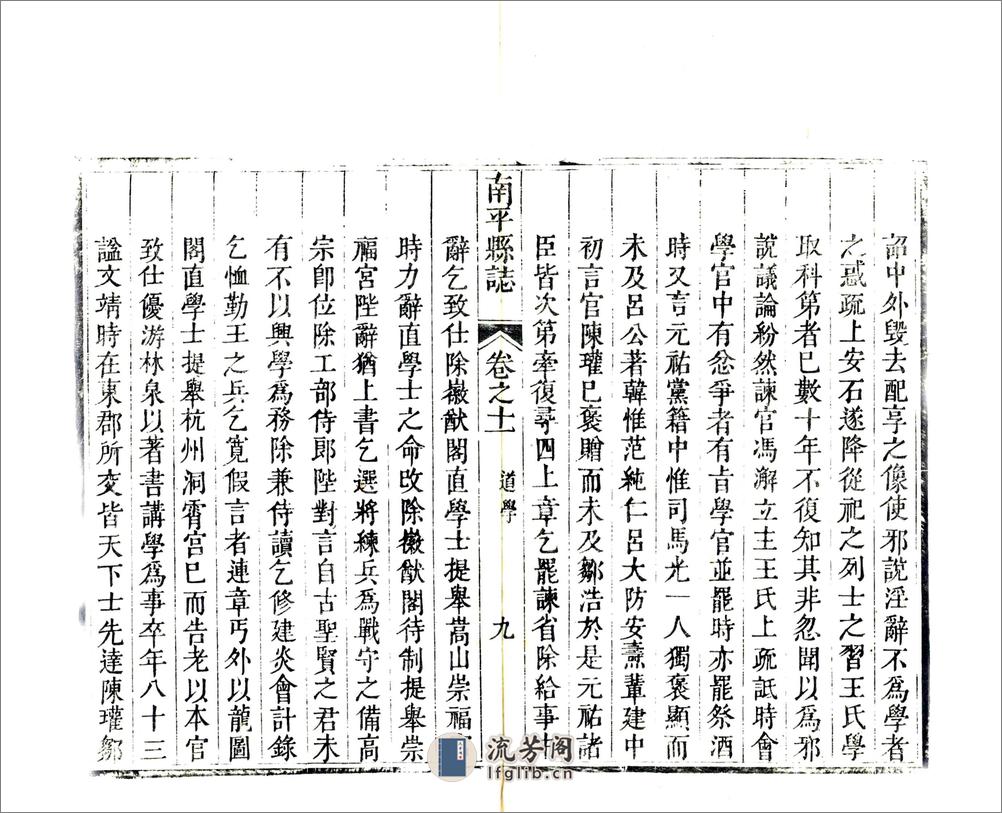 詔中外毀去配享之像使邪說淫辭不爲學者
之惑疏上安石遂降從祀之列士之習王氏學
取科第者已數十年不復知其非忽聞以爲邪
說議論紛然諫官馮澥立主王氏上疏詆時會
學官中有忿爭者有旨學官並罷時亦罷祭酒
時又言元祐黨籍中惟司馬光一人獨褒顯而
未及呂公著韓惟范純仁呂大防安燾輩建中
初言官陳瓘已褒贈而未及鄒浩於是元祐諸
臣皆次第牽復尋四上章乞罷諫省除給事
南平縣誌
卷之十一
道學
九
辭乞致仕除徽猷閣直學士提舉嵩山崇福
時力辭直學士之命改除徽猷閣待制提舉崇
福宮陛辭猶上書乞選將練兵爲戰守之備高
宗卽位除工部侍郞陛對言自古聖賢之君未
有不以興學爲務除兼侍讀乞修建炎會計錄
乞恤勤王之兵乞寬假言者連章丐外以龍圖
閣直學士提舉杭州洞霄宮已而告老以本官
致仕優游林泉以著書講學爲事卒年八十三
謚文靖時在東郡所交皆天下士先達陳瓘鄒
流芳阁
lfglib.cn